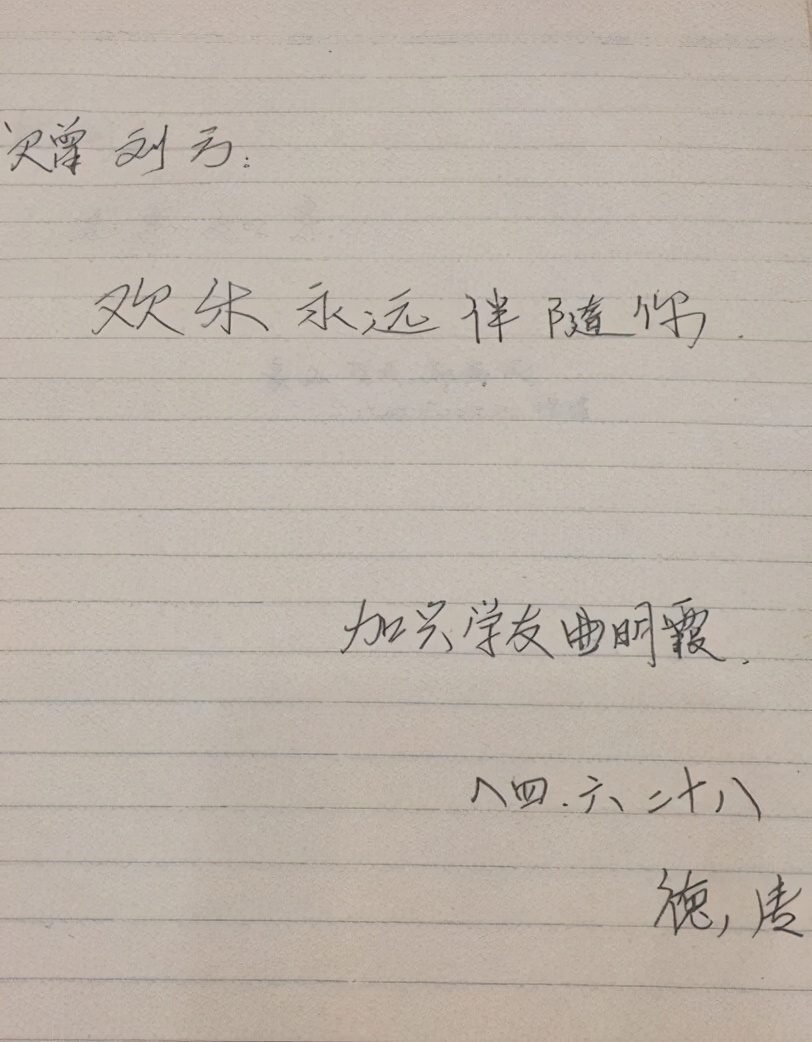 赠刘方:
欢乐永远伴随你.
加兴学友曲明霞.
八四.六 二十八
德,